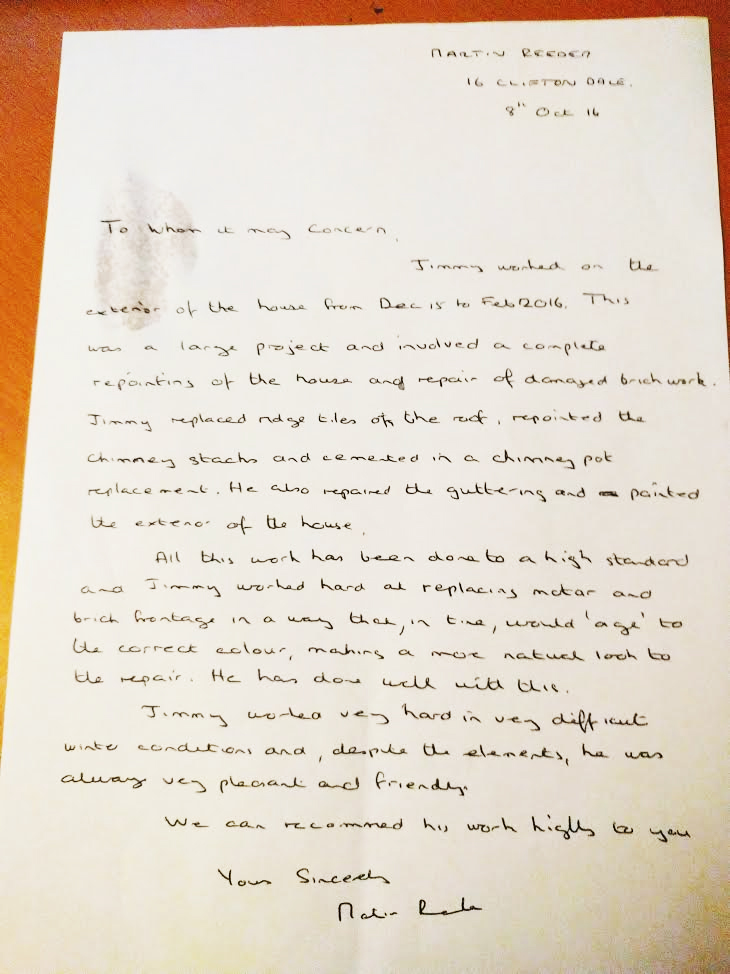 MARTIN REEDER
16 CLIFTON DALE.
8th Oct 16
To Whom it may Concern,
Jimmy worked on the
exterior of the house from Dec 15 to Feb 2016. This
was a large project and involved a complete
repointing of the house and repair of damaged brickwork.
Jimmy replaced ridge tiles on the roof, repointed the
chimney stacks and cemented in a chimney pot
replacement. He also repaired the guttering and painted
the exterior of the house.
All this work has been done to a high standard
and Jimmy worked hard at replacing motar and
brick frontage in a way that, in time, would 'age' to
the correct colour, making a more natural look to
the repair. He has done well with this.
Jimmy worked very hard in very difficult
winter conditions and, despite the elements, he was
always very pleasant and friendly.
We can recommed his work highly to you
Yours Sincerely
Martin Reeder